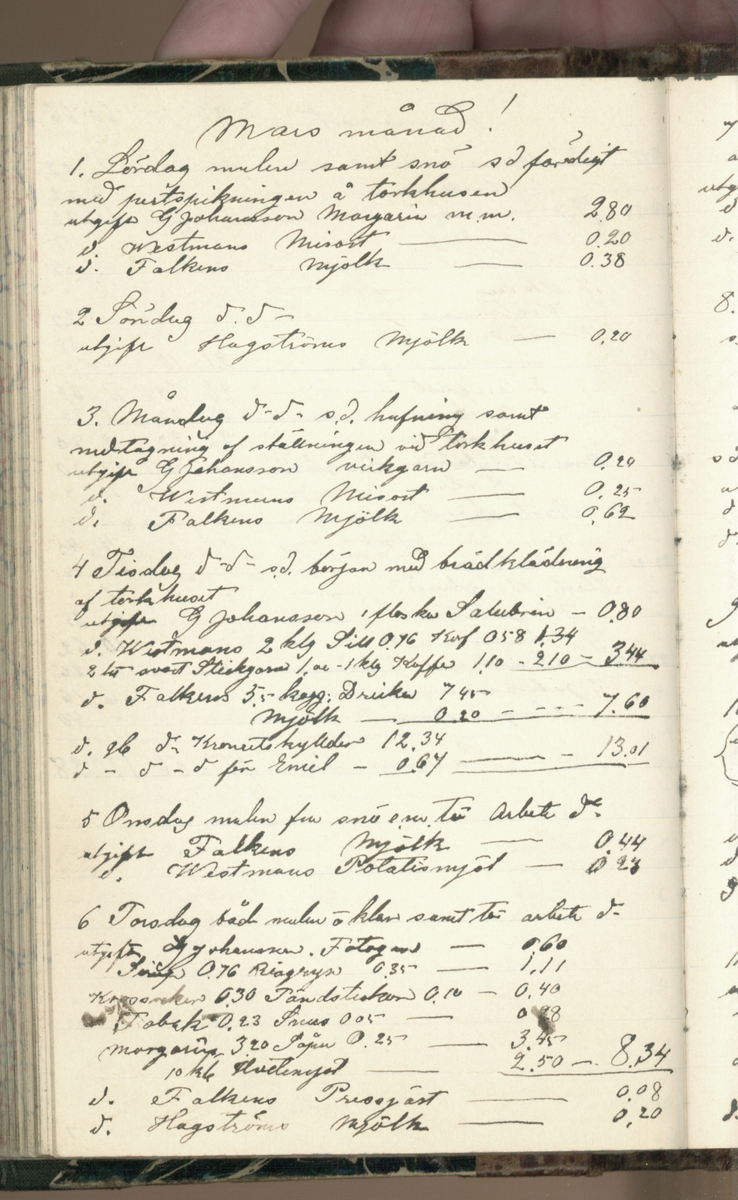 Mars månad!
1. Lördag mulen samt snö s d färdigt
med pertspikningen å torkhusen
utgift G Johansson Margarin m.m. 2.80
d. Westmans Misost 0.20
d. Falkens Mjölk 0.38
2 Söndag d. d -
utgift Hagströms Mjölk - 0.20
3. Måndag d - d - s.d. hufning samt
nedtagning af ställningen vid torkhuset
utgift G Johansson virkgarn - 0.20
d. Westmans Misost - 0.25
d. Falkens Mjölk - 0.62
4 Tisdag d - d - s.d. början med brädklädning
af torkhuset
utgift G Johansson 1 flaska Salubrin - 0.80
d. Westmans 2 klg Sill 0.76 Korf 0 58 1.34
2 svart Stickgarn 1,00 - 1 klg Kaffe 1.10 - 2.10 - 3.44
d. Falkens 5,5 kagg: Dricka 7 45
Mjölk - 0.20 - - - - 7.60
d. d - 12.34
d - d - d för Emil - 0.67 - 13.01
5 Onsdag mulen fin snö e.m. tö Arbete d -
utgift Falkens Mjölk - 0.44
d. Westmans Potatismjöl - 0 23
6 Torsdag båd mulen o klar samt tö arbete d -
utgift G Johansson. Fotogen - 0.60
Sirup 0.76 Risgryn 0.35 - 1.11
Krossocker 0.30 Tändstickor 0.10 - 0.40
Tobak 0.23 Snus 0 05 - 0.28
Margarin 3 20 Såpa 0.25 - 3.45
10 klg Hvetemjöl - 2.50 - 8.34
d. Falkens Pressjäst - 0.08
d. Hagströms Mjölk - 0.20